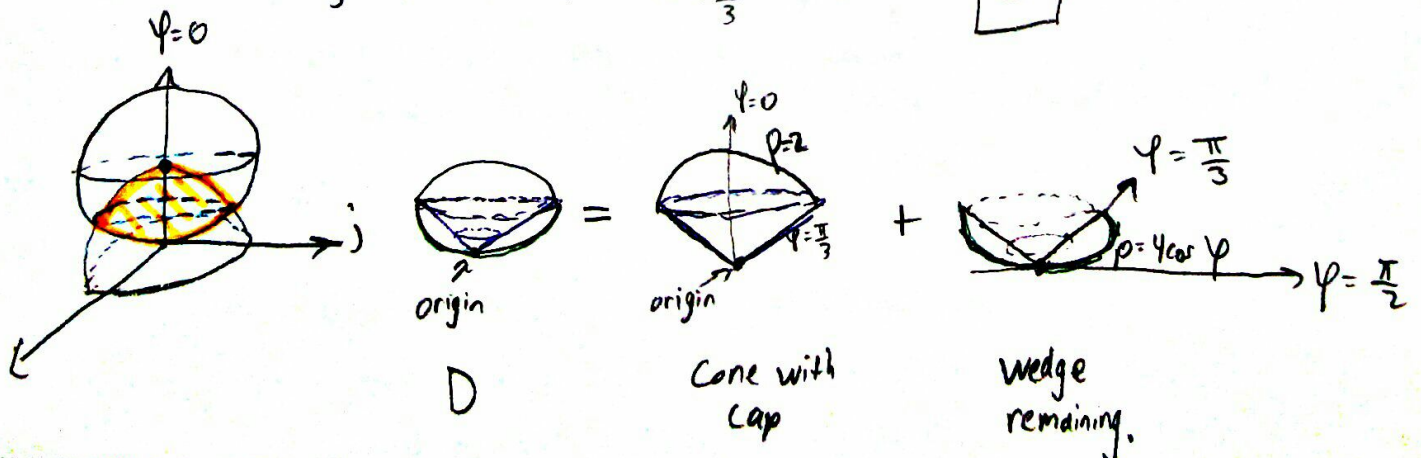 3
π/3
φ=0
j
i
origin
D
=
φ=0
ρ=2
φ=π/3
origin
Cone with
cap
+
φ=π/3
ρ=4cos φ
φ=π/2
wedge
remaining.